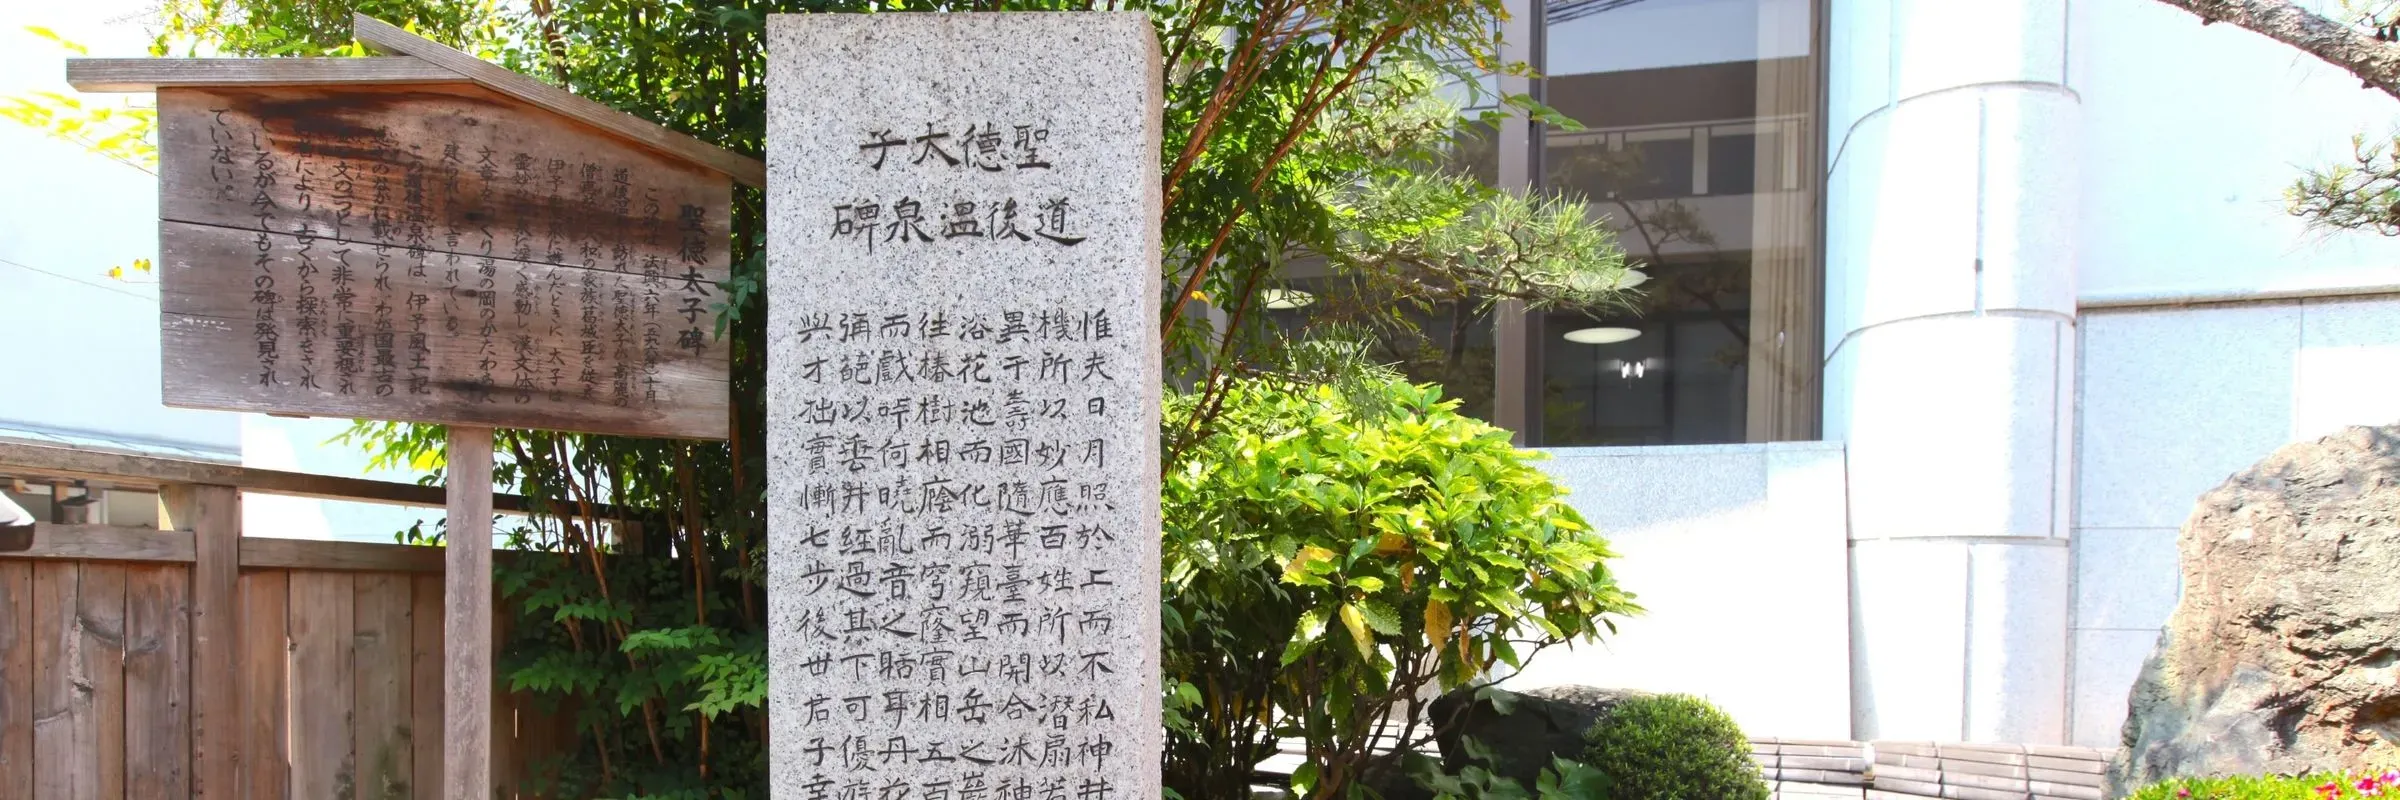 聖徳太子
道後温泉碑
惟夫日月照於上而不私神井
機所以妙應百姓所以潜扇若
異于壽國隨華臺而開合沐神
浴花池而化溺窺望山岳之巖
往椿樹相廕而穹窿實相五百
而戲哢何曉亂音之聒耳丹花
彌葩以垂井經過其下可優遊
與才拙實慚七歩後世君子幸
聖徳太子碑
この碑は、法興六年(五九六年)十月、
道後温泉を訪れた聖徳太子が高麗の
僧恵慈
伊予
霊妙な温泉に深く感動し、漢文体の
文章をつくり湯の岡のかたわらに
建られたと言われている。
この道後温泉碑は、伊予風土記
逸文のなかに載せられ、わが国最古の
文の一つとして非常に重要視され
により、古くから探索をされ
ているが今でもその碑は発見され
ていない。